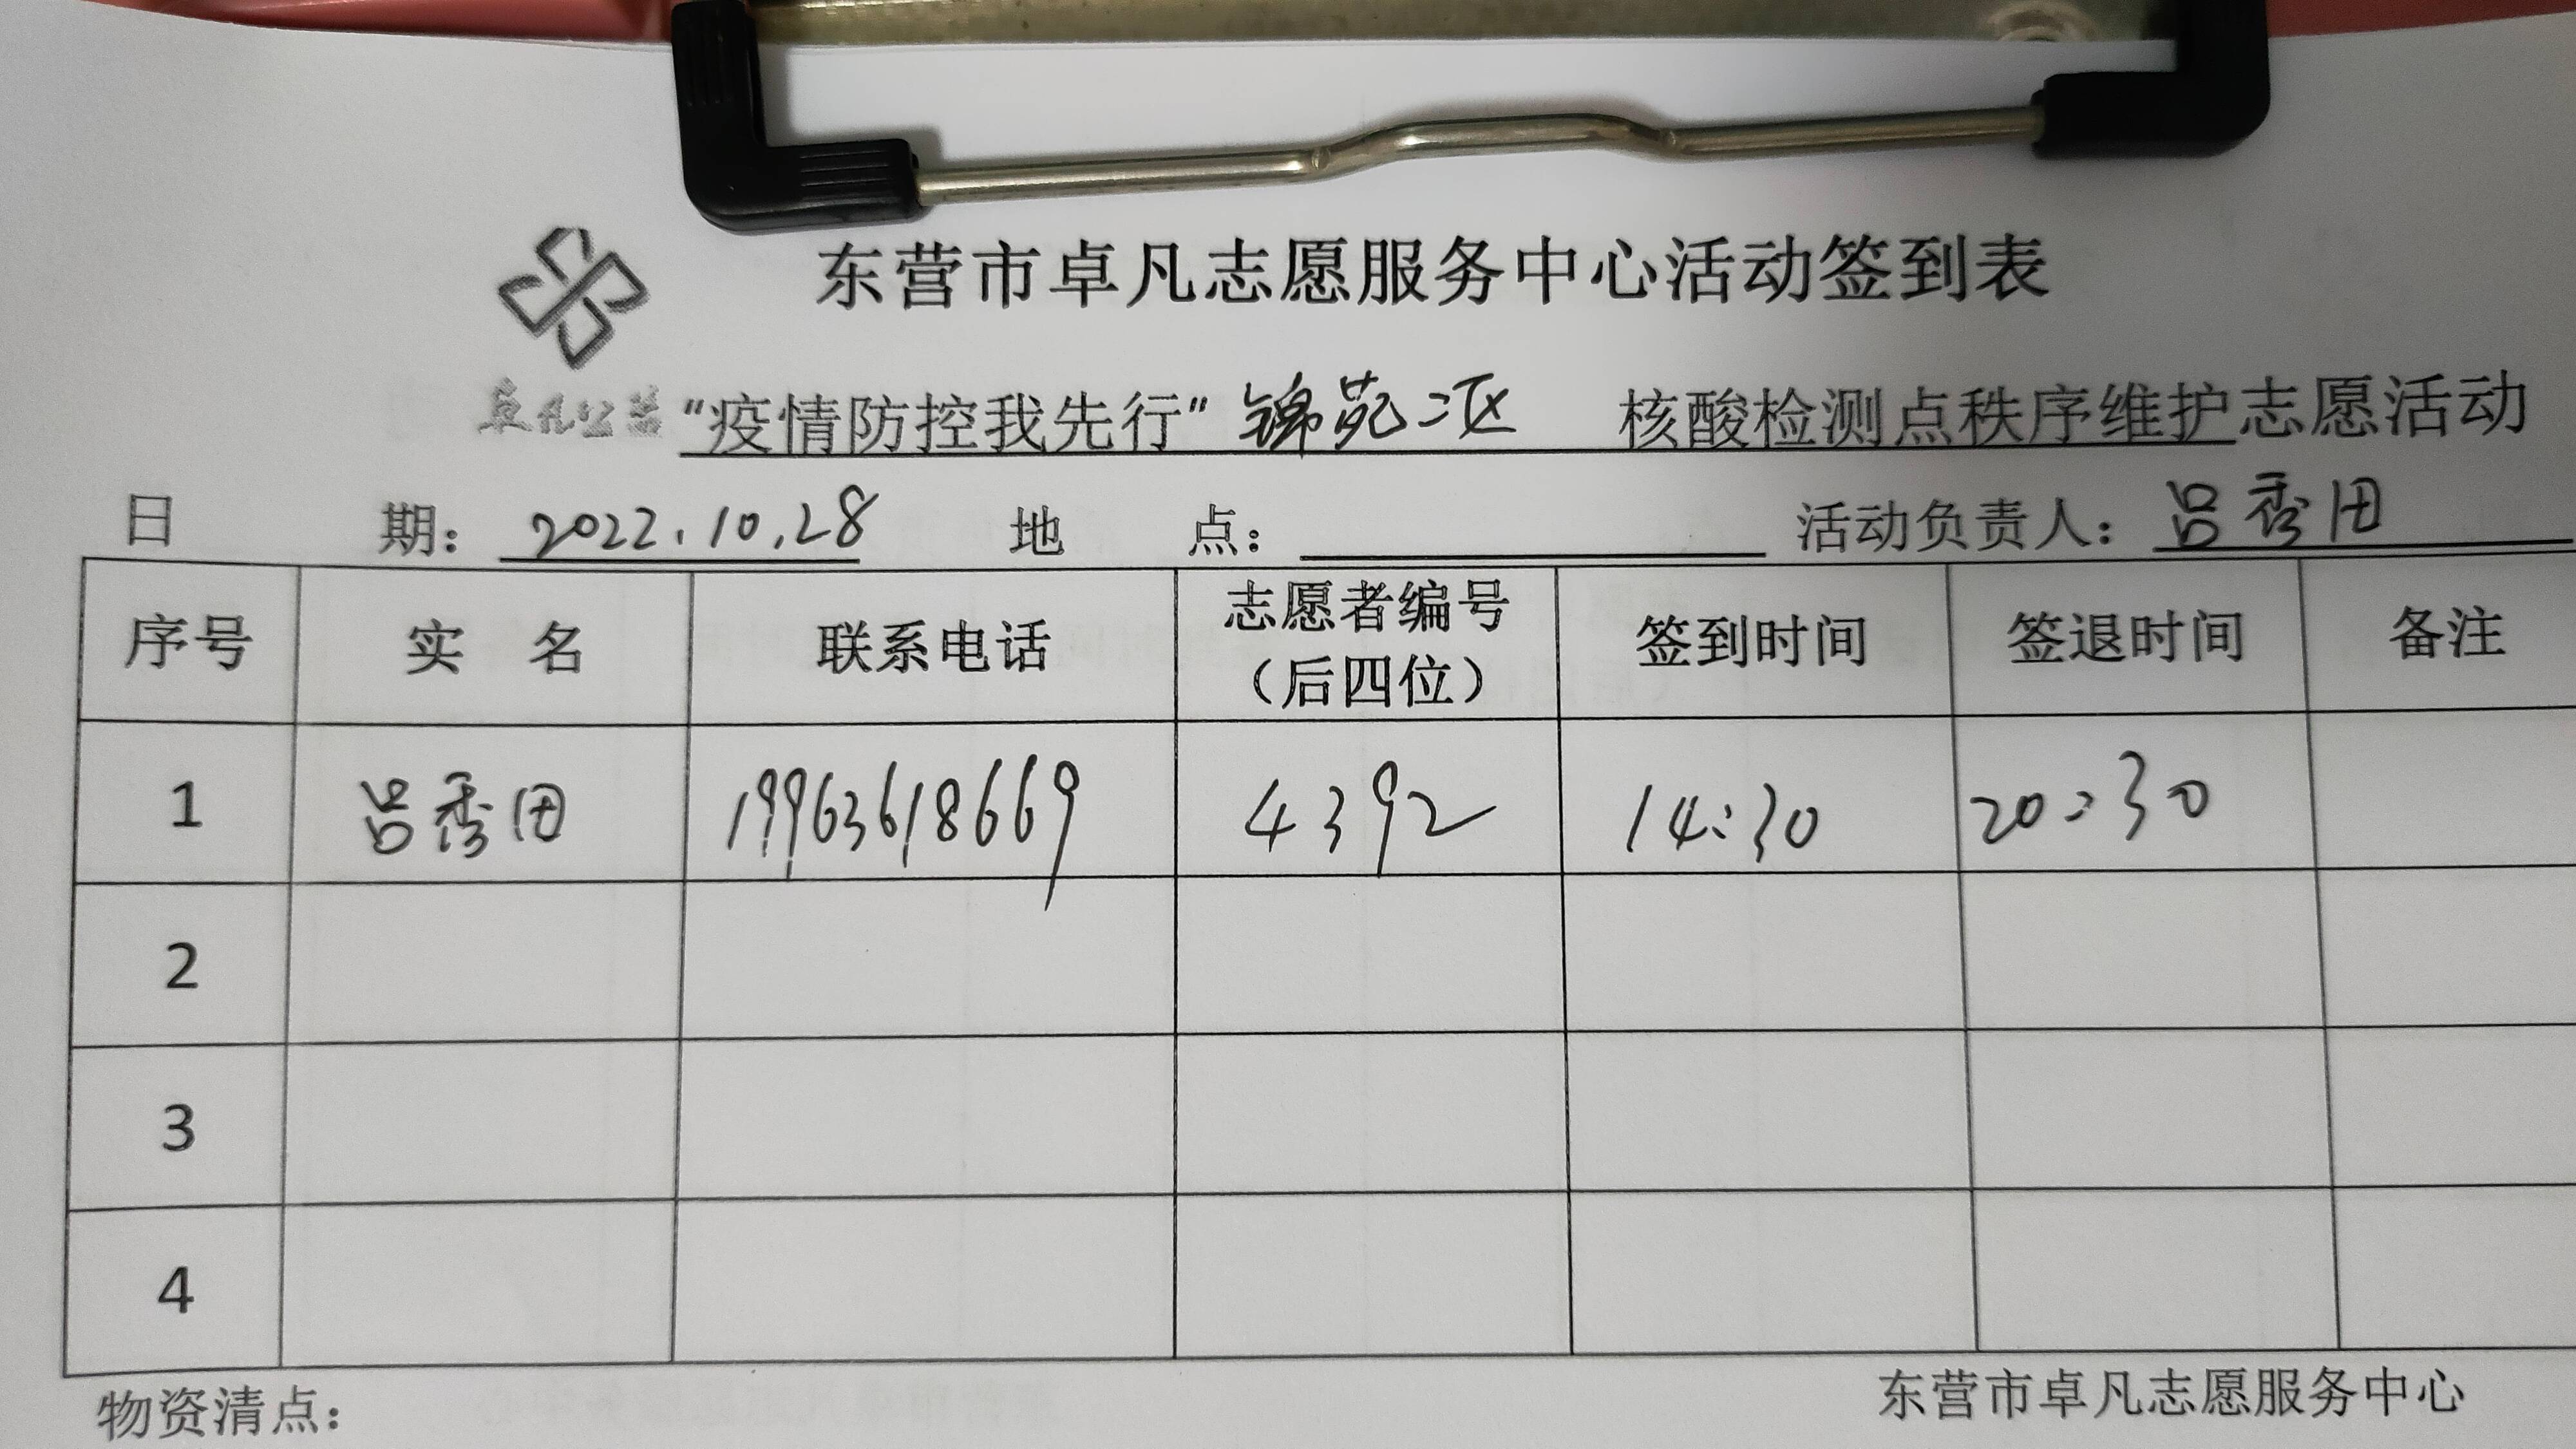 东营市卓凡志愿服务中心活动签到表
卓凡公益
“疫情防控我先行”锦苑二区 核酸检测点秩序维护志愿活动
日 期：2022.10.28 地 点： 活动负责人：吕秀田
序号 实 名 联系电话 志愿者编号（后四位） 签到时间 签退时间 备注
1 吕秀田 19963618669 4392 14:30 20:30
2
3
4
物资清点： 东营市卓凡志愿服务中心